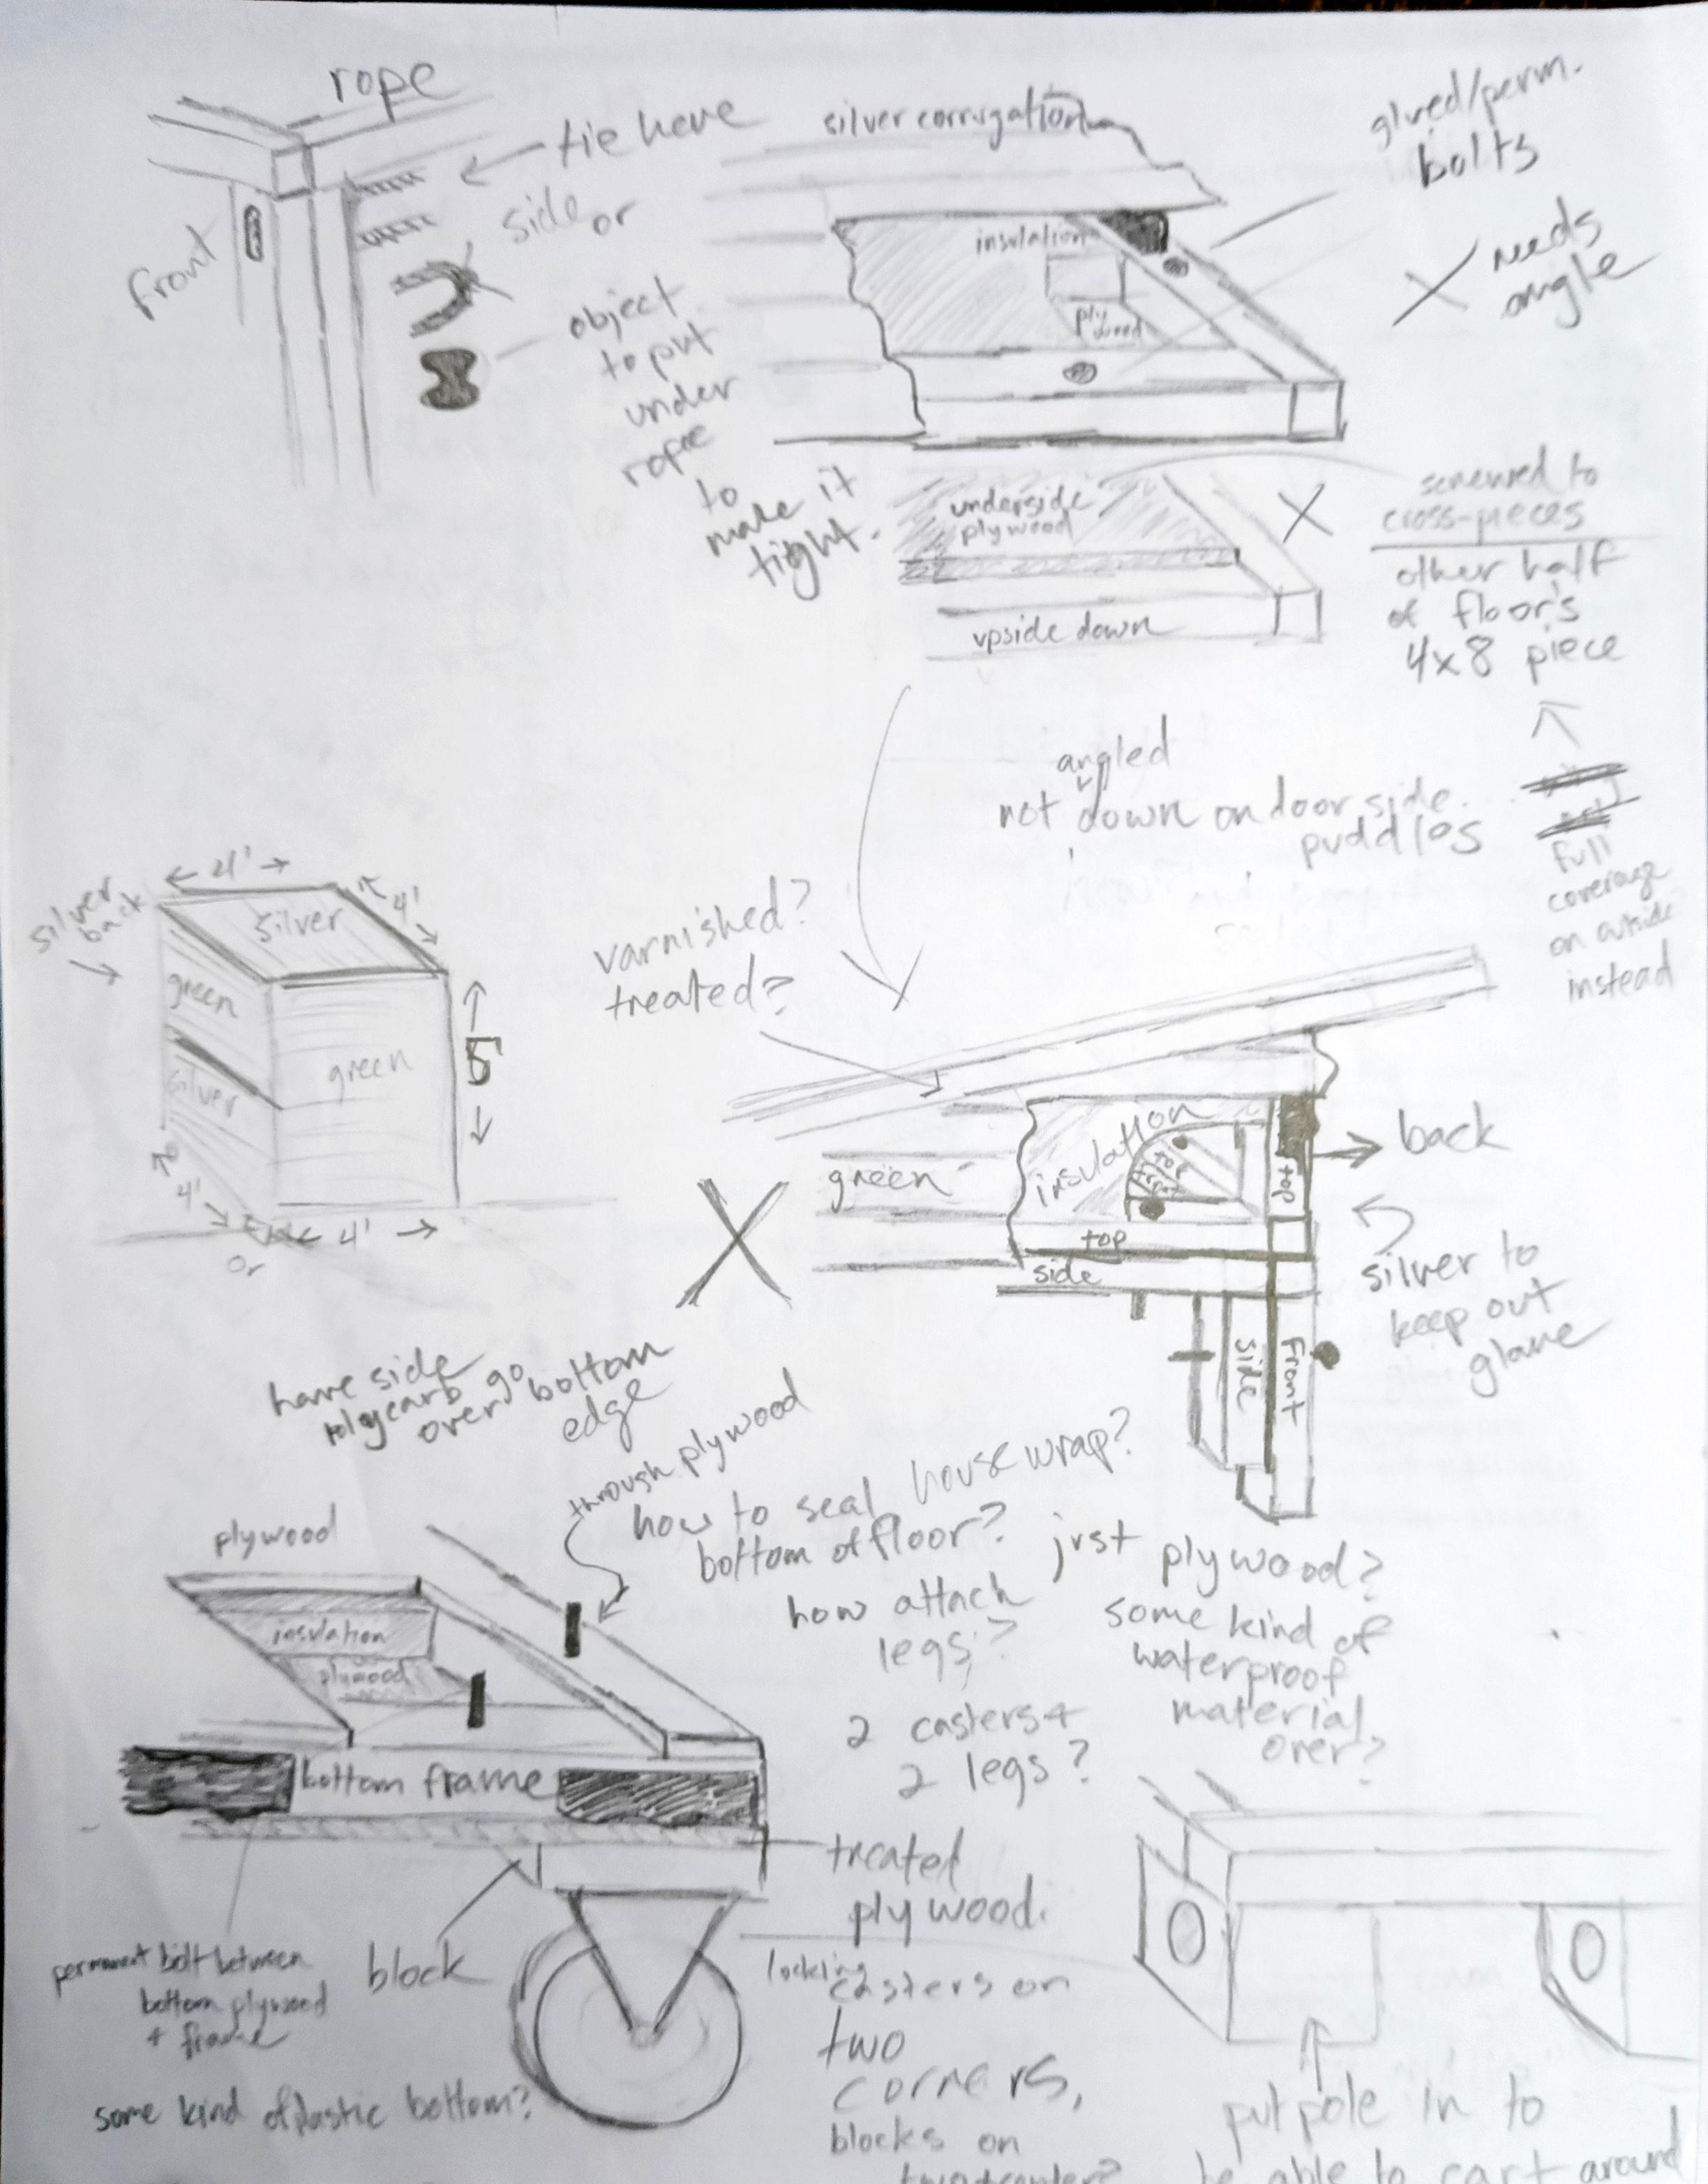 rope
tie here
side or
front
object
to put
under
rope
to
make it
tight.
silver corrugation
glued/perm.
bolts
X needs
angle
insulation
ply
wood
underside
plywood
X
upside down
screwed to
cross-pieces
other half
of floor's
4x8 piece
full
coverage
on outside
instead
angled
not down on door side.
puddles
silver
back
4'
4'
silver
green
silver
green
5'
4'
4'
or
varnished?
treated?
X
green
insulation
top
top
side
side
front
back
silver to
keep out
glare
have side
polycarb go
over bottom
edge
through plywood
how to seal
bottom of floor?
house wrap?
how attach
legs?
2 casters +
2 legs?
just plywood?
some kind of
waterproof
material
over?
plywood
insulation
plywood
bottom frame
treated
plywood.
block
permanent bolt between
bottom plywood
+ frame
some kind of plastic bottom?
locking
casters on
two
corners,
blocks on
put pole in to
be able to cart around